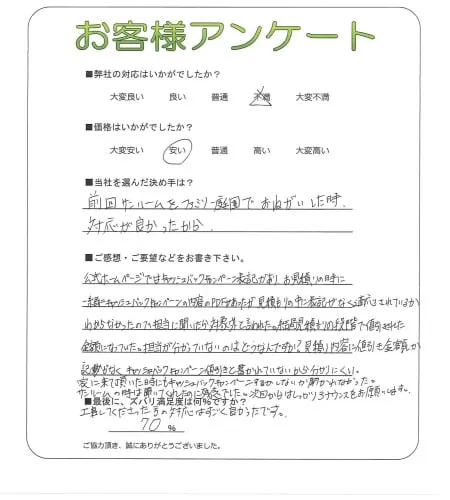 お客様アンケート
■弊社の対応はいかがでしたか?
大変良い 良い 普通 不満 大変不満
■価格はいかがでしたか?
大変安い 安い 普通 高い 大変高い
■当社を選んだ決め手は?
前回サンルームをファミリー庭園でおねがいした時、
対応が良かったから。
■ご感想・ご要望などをお書き下さい。
公式ホームページではキャッシュバックキャンペーン表記があり お見積りの時に
一緒にキャッシュバックキャンペーンの内容のPDFもあったが見積もりの中に表記がなく適応されているか
わからなかったので担当に聞いたら対象外と言われた。結局見積もりの段階で値引きされた
金額になっていた。担当が分かっていないのはどうなんですか?見積り内容に値引き金額が
記載がなくキャッシュバックキャンペーン値引きと書かれていないから分かりにくい。
家に来て頂いた時にもキャッシュバックキャンペーンするかしないか聞かれなかった。
サンルームの時は聞いてくれたのに残念でした。次回からはしっかりアナウンスをお願いします。
■最後に、ズバリ満足度は何%ですか?
工事してくださった方の対応はすごく良かったです。
70 %
ご協力頂き、誠にありがとうございました。